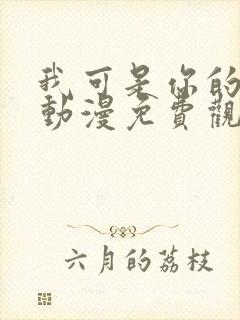 我可是你的
動漫免費觀
六月的荔枝